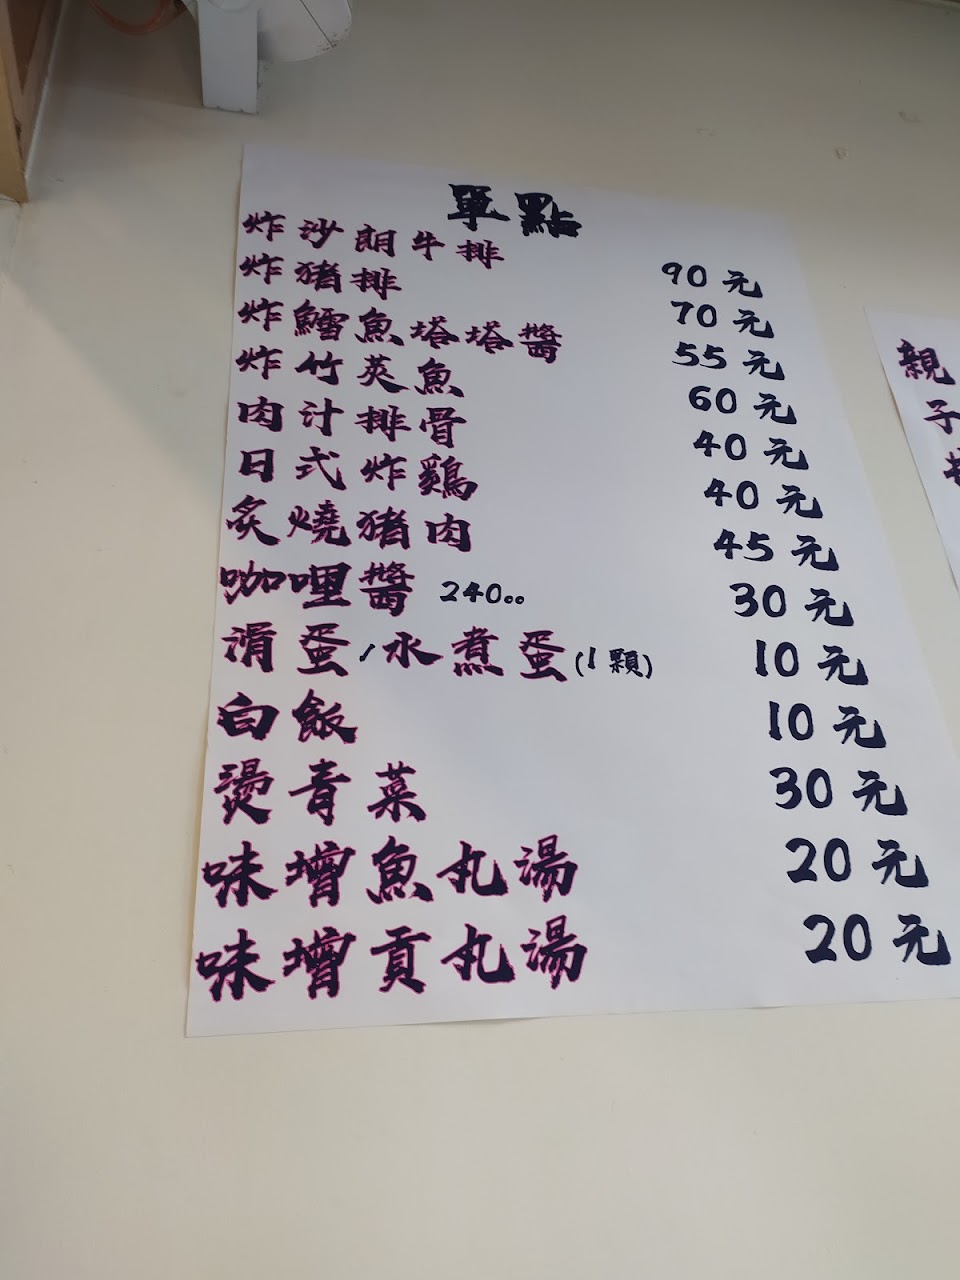 單點
炸沙朗牛排 90元
炸猪排 70元
炸鱈魚塔塔醬 55元
炸竹莢魚 60元
肉汁排骨 40元
日式炸鷄 40元
炙燒猪肉 45元
咖哩醬 240cc 30元
滑蛋/水煮蛋(1顆) 10元
白飯 10元
燙青菜 30元
味增魚丸湯 20元
味增貢丸湯 20元
親
子